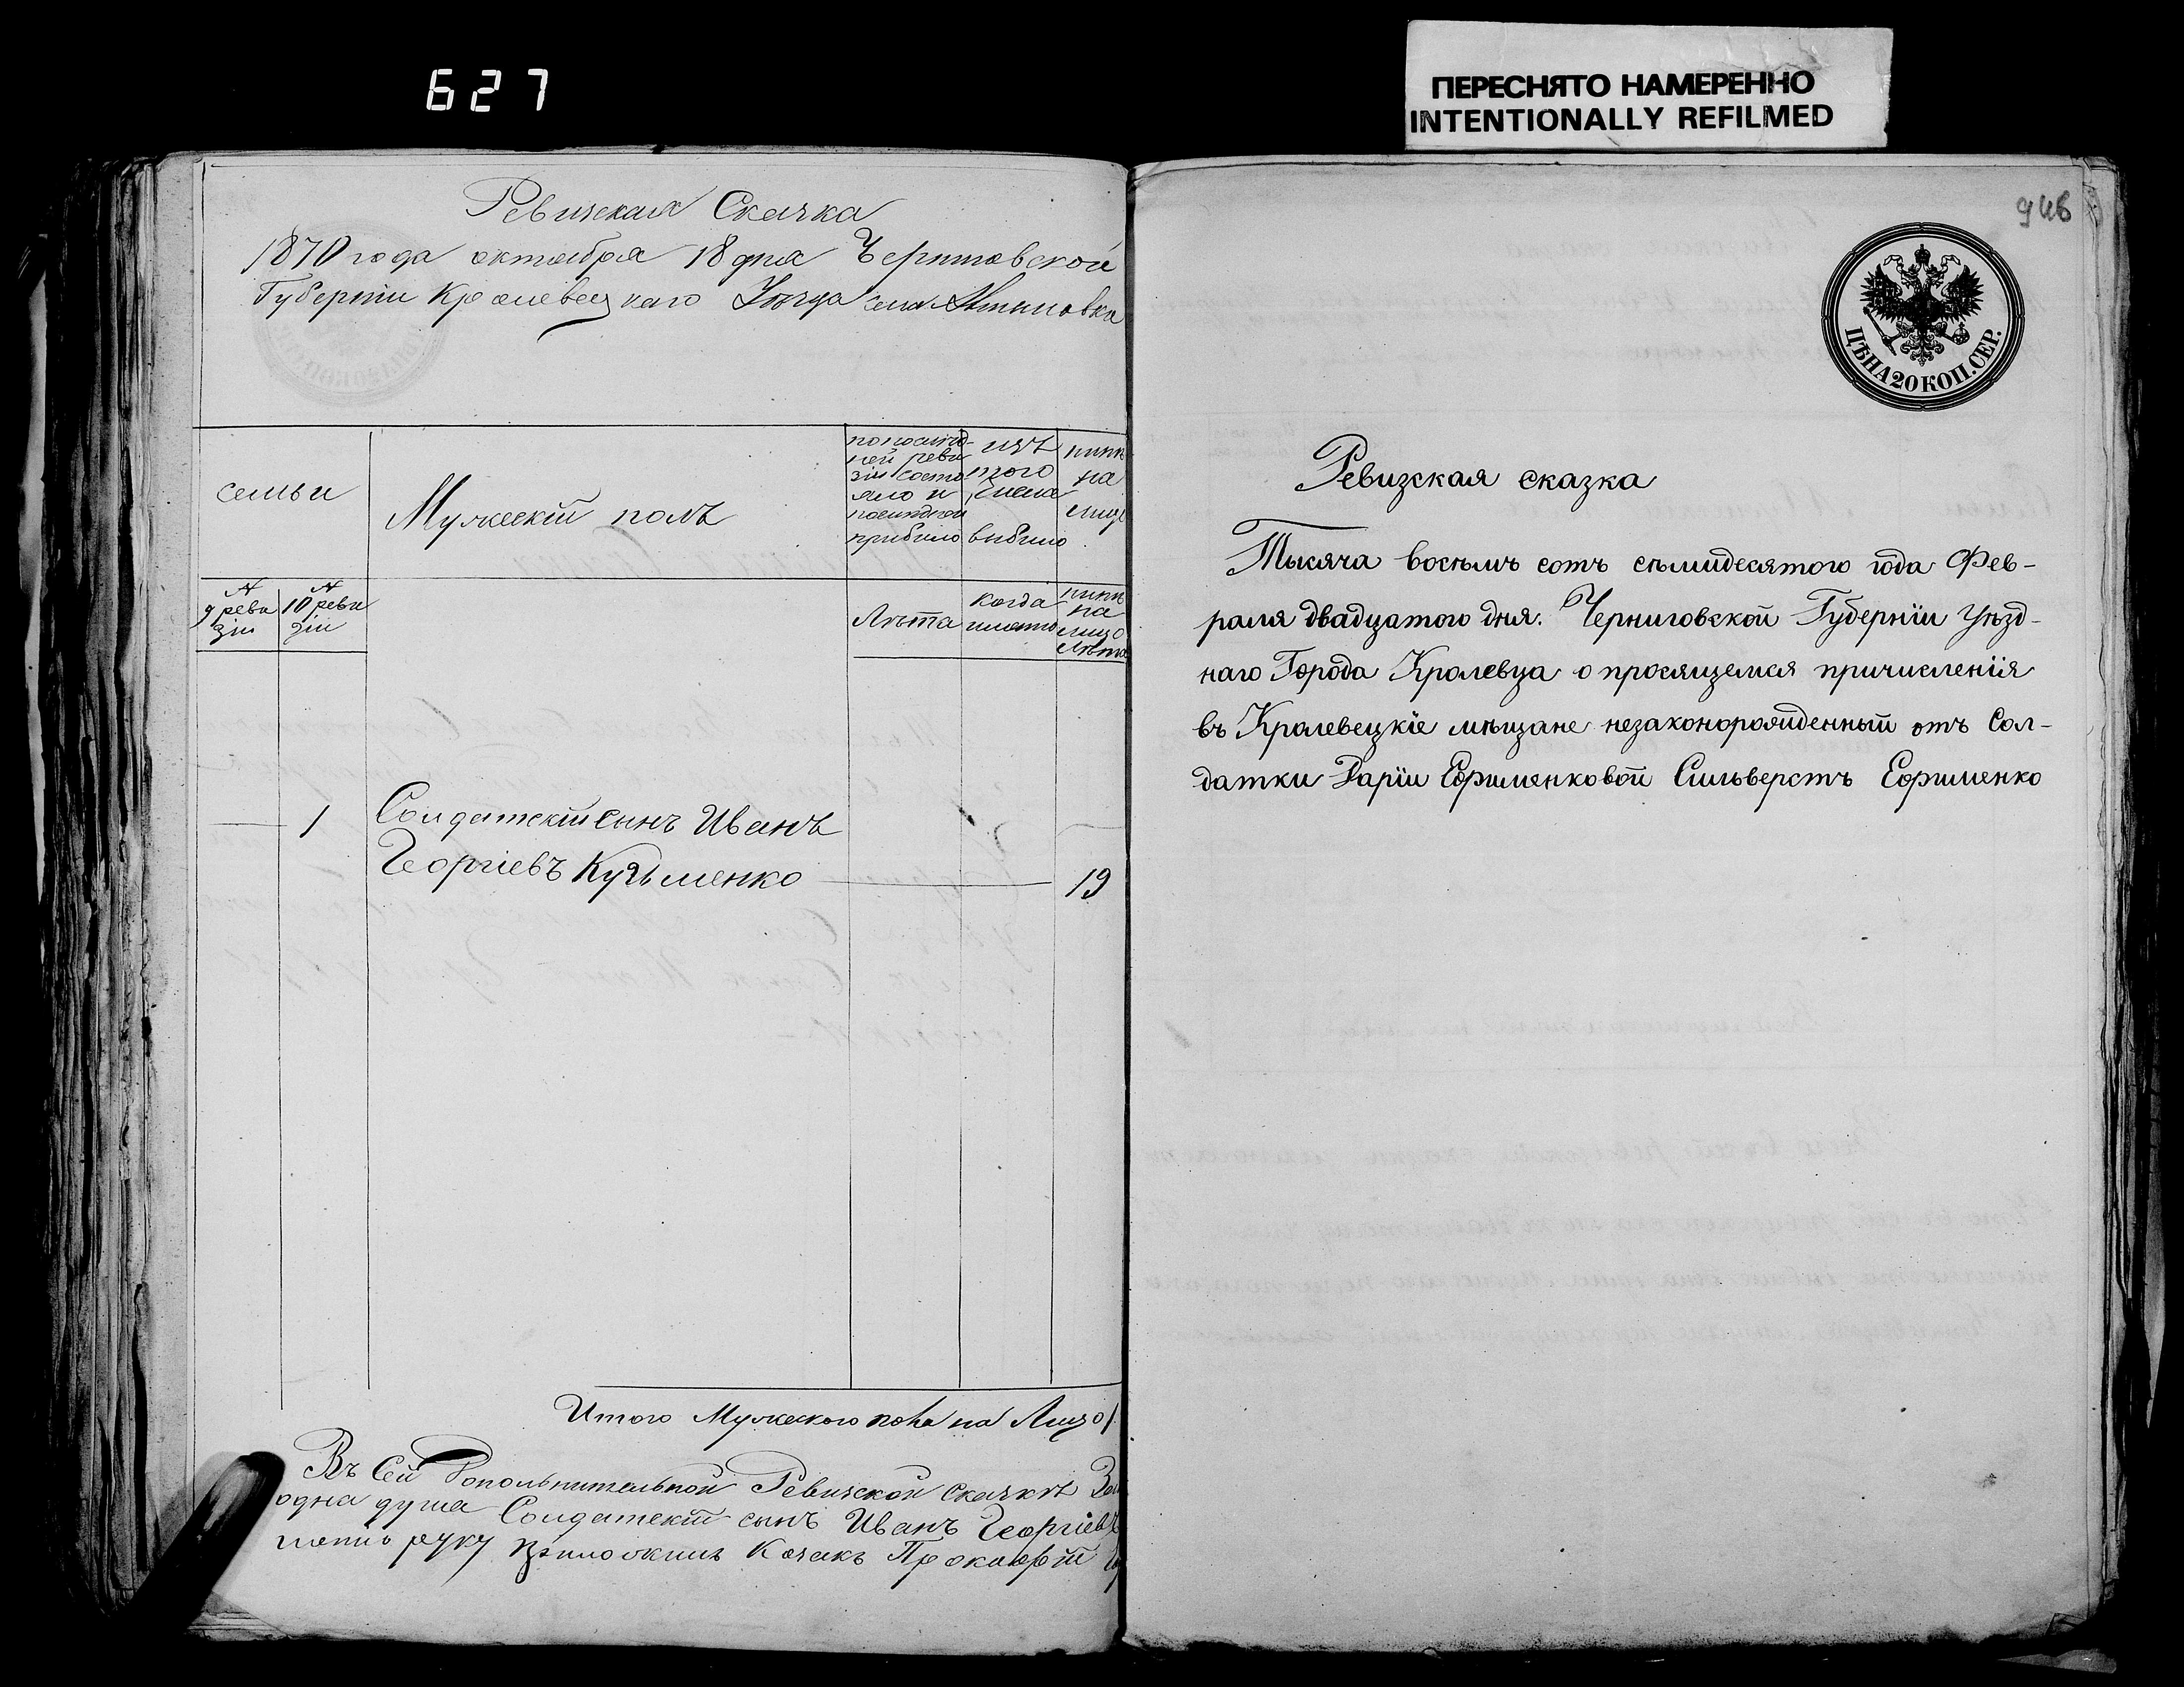 627
ПЕРЕСНЯТО НАМЕРЕННО
INTENTIONALLY REFILMED
Ревизская Сказка
1870 года октября 18 дня Черниговской
Губернии Кролевецкаго Уезда села
семьи
Мужескій полъ
по послед-
ней реви
зіи состо
яло и
после того
прибыло
изъ
того
числа
выбыло
ныне
на
лице
№
9 реви
зіи
№
10 реви
зіи
Лѣта
когда
именно
ныне
на
лицо
Лѣта
1
Солдатскій сынъ Иванъ
Георгіевъ Кузьменко
19
Итого Мужескаго пола на Лицо 1
Въ Сей Дополнительной Ревизской Сказкѣ
одна душа Солдатскій сынъ Иванъ Георгіевъ
руку приложилъ Козакъ Прокофій
946
ЦѢНА 20 КОП. СЕР.
Ревизская сказка
Тысяча восемь сотъ семидесятого года Фев-
раля двадцатого дня. Черниговской Губерніи Уѣзд-
наго Города Кролевца о просящемся причисленія
въ Кролевецкіе мѣщане незаконорожденный отъ Сол-
датки Даріи Ефименковой Сильверстъ Ефименко